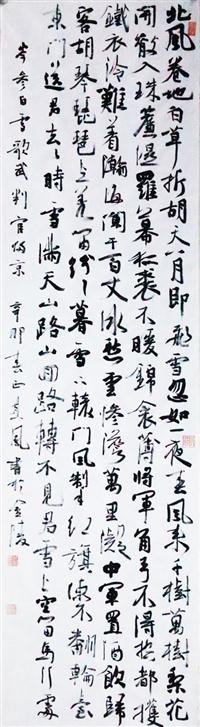 北風卷地白草折胡天八月即飛雪忽如一夜春風来千樹萬樹梨花
開散入珠簾濕羅幕狐裘不暖錦衾薄將軍角弓不得控都護
鐵衣冷難着瀚海闌干百丈冰愁雲慘淡萬里凝中軍置酒飲歸
客胡琴琵琶與羌笛紛々暮雪下轅門風掣紅旗凍不翻輪臺
東門送君去々時雪滿天山路山回路轉不見君雪上空留馬行處
岑參白雪歌武判官歸京 辛卯春正 風書於金陵